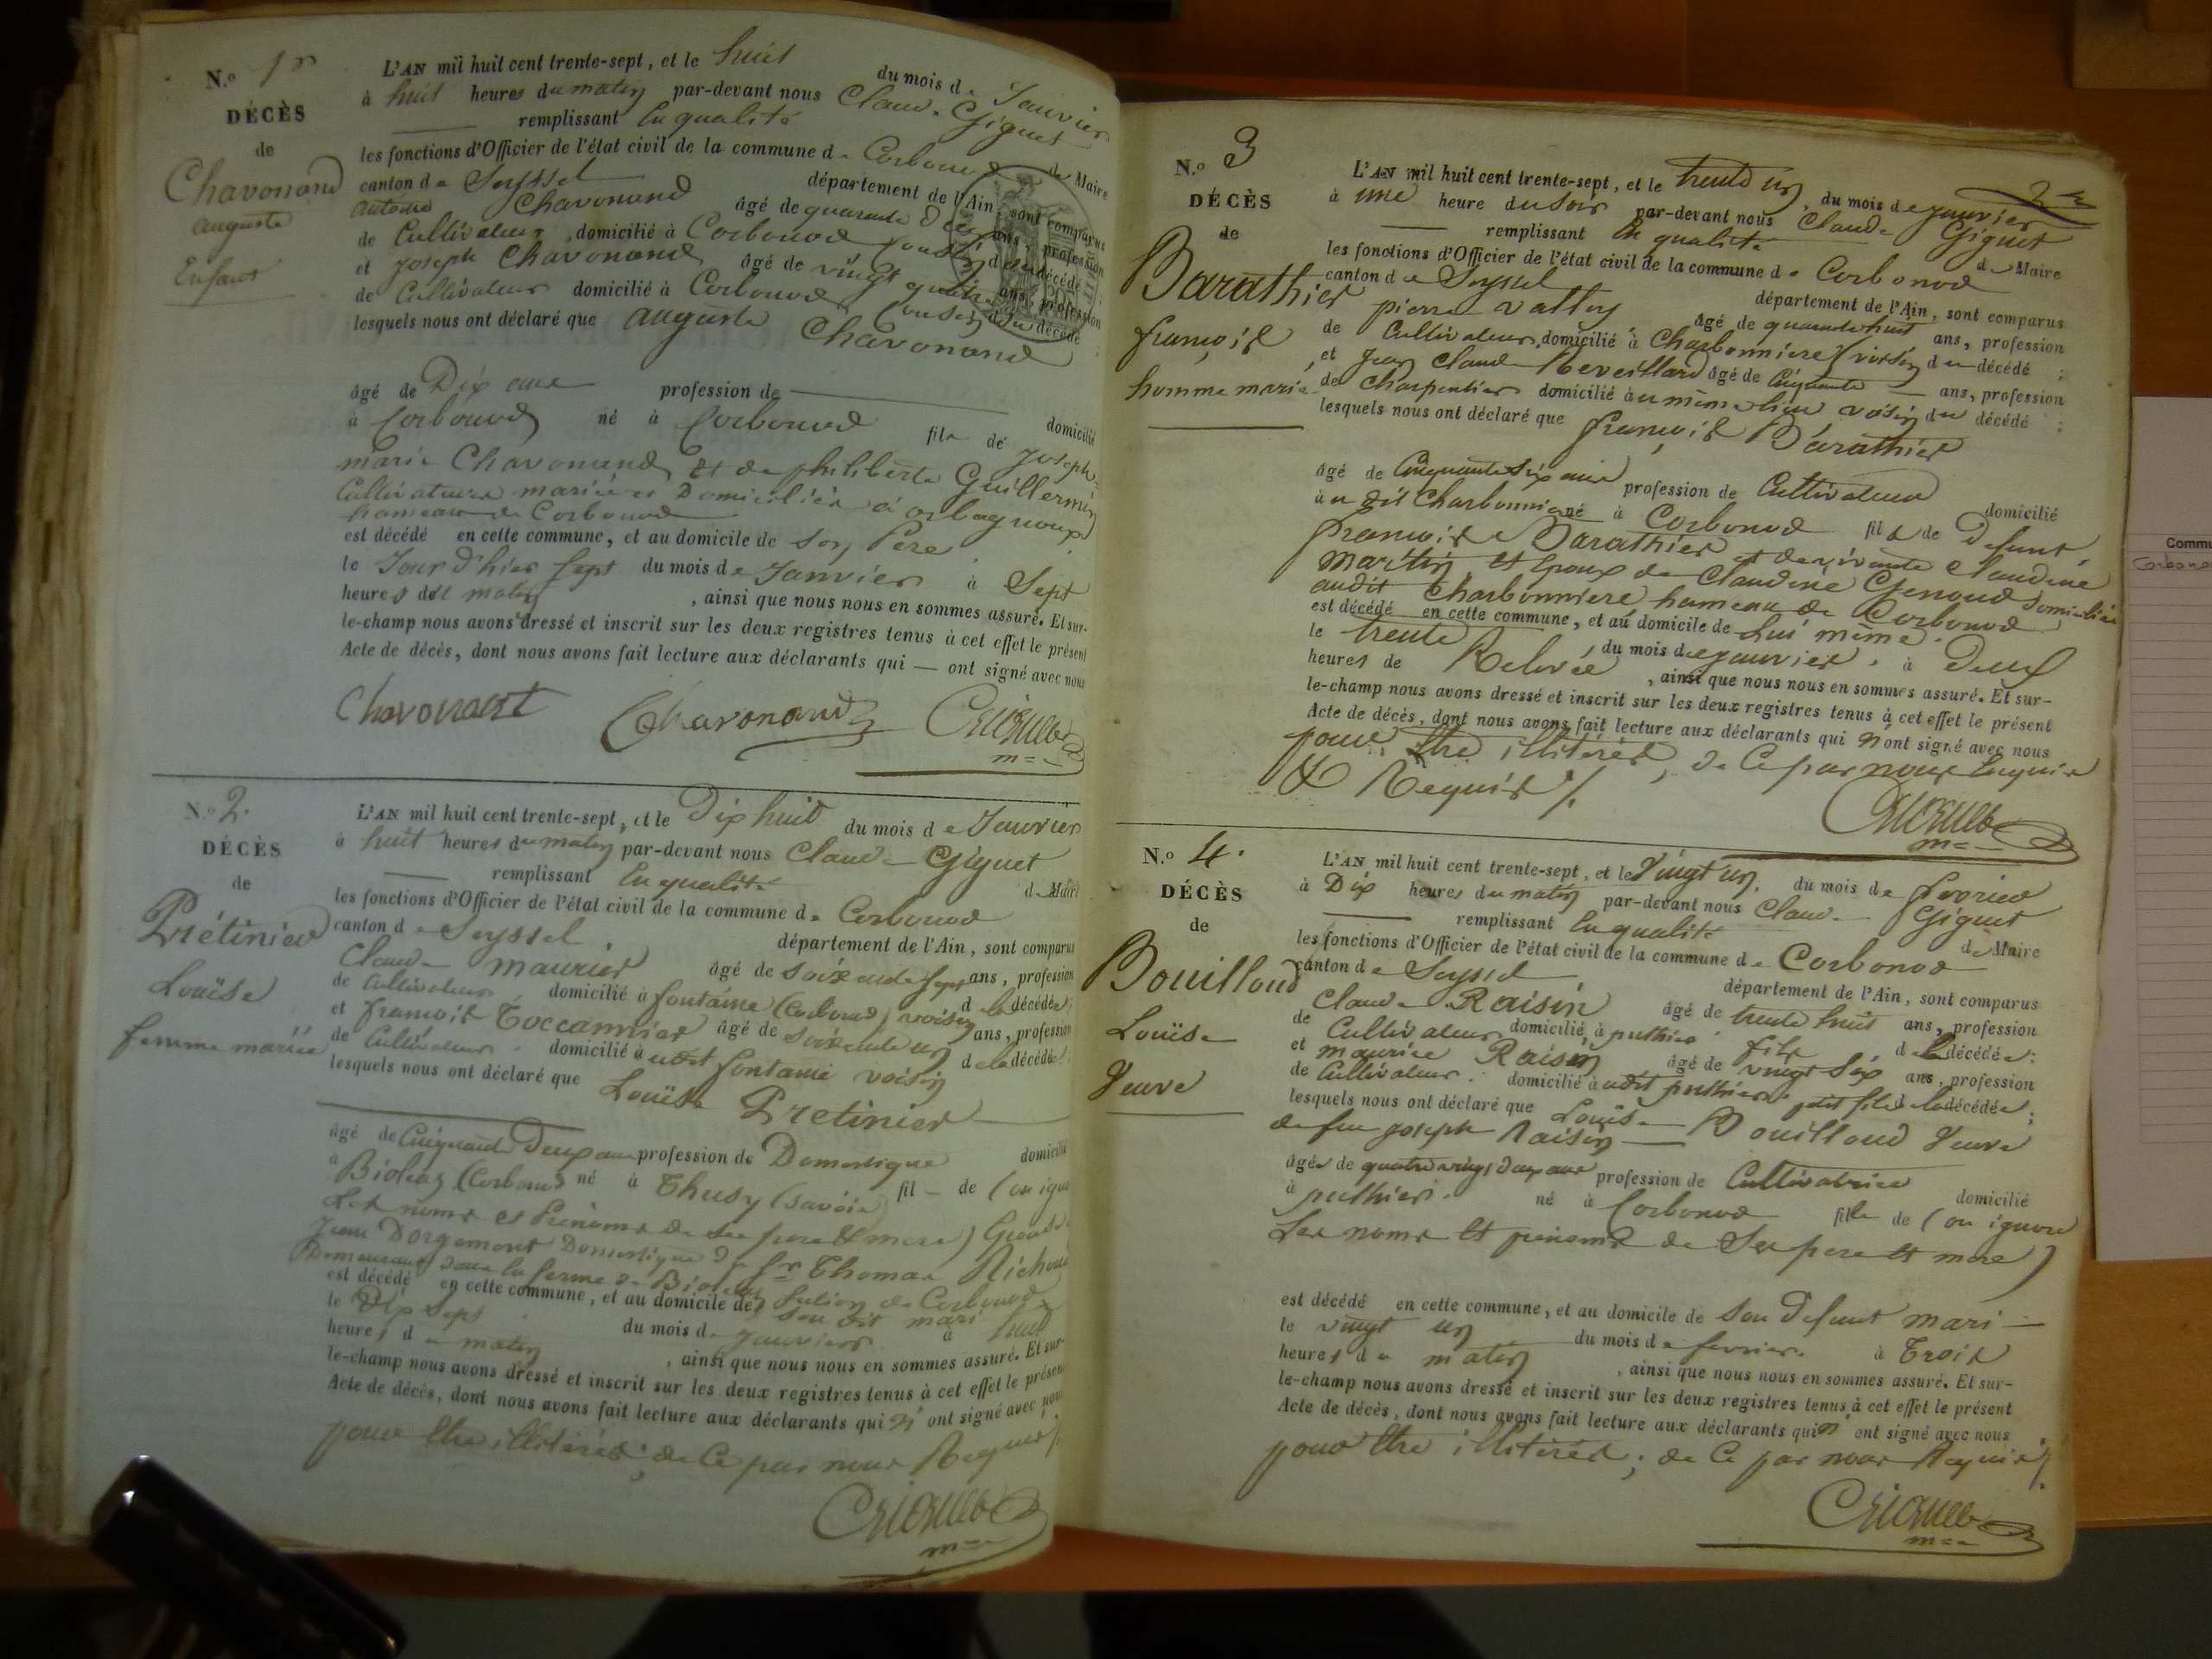 N.º 1er
DÉCÈS
de
Chavonand
auguste
Enfant
L'AN mil huit cent trente-sept, et le huit du mois de Janvier
à huit heures du matin par-devant nous Claude Giguet
remplissant En qualité de Maire
les fonctions d'Officier de l'état civil de la commune de Corbonod
canton de Seyssel département de l'Ain, sont comparus
Chavonand âgé de quarante ans, profession
de Cultivateur, domicilié à Corbonod cousin du décédé ;
et joseph Chavonand âgé de vingt quatre ans, profession
de Cultivateur domicilié à Corbonod Cousin du décédé ;
lesquels nous ont déclaré que auguste Chavonand
âgé de Dix ans profession de domicilié
à Corbonod né à Corbonod fils de joseph
marie Chavonand et de philiberte Guillermin
Cultivateurs mariés et Domiciliés à orbagnoux
hameau de Corbonod
est décédé en cette commune, et au domicile de son Père
le Jour d'hier sept du mois de Janvier à Sept
heures du matin, ainsi que nous nous en sommes assuré. Et sur-
le-champ nous avons dressé et inscrit sur les deux registres tenus à cet effet le présent
Acte de décès, dont nous avons fait lecture aux déclarants qui — ont signé avec nous
Chavonant Chavonand Giguet
N.º 2.
DÉCÈS
de
Prétinier
Louïse
femme mariée
L'AN mil huit cent trente-sept, et le Dix huit du mois de Janvier
à huit heures du matin par-devant nous Claude Giguet
remplissant En qualité de Maire
les fonctions d'Officier de l'état civil de la commune de Corbonod
canton de Seyssel département de l'Ain, sont comparus
Claude maurier âgé de soixante sept ans, profession
de Cultivateur, domicilié à fontaine (Corbonod) voisin de la décédée ;
et françois Toccannier âgé de soixante un ans, profession
de Cultivateur. domicilié audit fontaine voisin de la décédée ;
lesquels nous ont déclaré que Louïse Pretinier
âgé de Cinquante Deux ans profession de Domestique domicilié
à Bioleaz (Corbonod) né à Thusy (savoie) fil— de (on ignore
Les noms et Prénoms de ses pere et mere)
Jean Dorgemont Domestique du Sr Thomas
Demeurant dans la ferme de
est décédé en cette commune, et au domicile de son dit mari
le Dix Sept du mois de janvier. à huit
heures du matin, ainsi que nous nous en sommes assuré. Et sur-
le-champ nous avons dressé et inscrit sur les deux registres tenus à cet effet le présent
Acte de décès, dont nous avons fait lecture aux déclarants qui n'ont signé avec nous
pour être illitérés ; de Ce par nous Requis /.
Giguet
N.º 3
DÉCÈS
de
Barathier
françois
homme marié
L'AN mil huit cent trente-sept, et le trente un, du mois de janvier
à une heure du soir par-devant nous Claude Giguet
remplissant En qualité de Maire
les fonctions d'Officier de l'état civil de la commune de Corbonod
canton de Seyssel département de l'Ain, sont comparus
pierre vallin âgé de quarante huit ans, profession
de Cultivateur, domicilié à Charbonniere (voisin du décédé ;
et Jean Claude Reveillard âgé de Cinquante ans, profession
de Charpentier domicilié au même lieu voisin du décédé ;
lesquels nous ont déclaré que françois Barathier
âgé de Cinquante Six ans profession de Cultivateur domicilié
au dit Charbonniere né à Corbonod fils de Defunt
françois Barathier et de vivante Claudine
Martin et Epoux de Claudine Genoud domiciliée
audit Charbonniere hameau de Corbonod
est décédé en cette commune, et au domicile de Lui même.
le trente du mois de janvier. à Deux
heures de Relevée, ainsi que nous nous en sommes assuré. Et sur-
le-champ nous avons dressé et inscrit sur les deux registres tenus à cet effet le présent
Acte de décès, dont nous avons fait lecture aux déclarants qui n'ont signé avec nous
pour être illitérés, de Ce par nous Enquis
& Requis /.
Giguet
N.º 4.
DÉCÈS
de
Bouilloud
Louïse
Veuve
L'AN mil huit cent trente-sept, et le Vingt un, du mois de fevrier
à Dix heures du matin par-devant nous Claude Giguet
remplissant En qualité de Maire
les fonctions d'Officier de l'état civil de la commune de Corbonod
canton de Seyssel département de l'Ain, sont comparus
Claude Raisin âgé de trente huit ans, profession
de Cultivateur domicilié à puthier fils de la décédée ;
et maurice Raisin âgé de vingt Six ans, profession
de Cultivateur. domicilié audit puthier. petit fils de la décédée ;
lesquels nous ont déclaré que Louïse Bouilloud Veuve
de feu joseph Raisin
âgée de quatre vingt deux ans profession de Cultivatrice domicilié
à puthier. né à Corbonod fille de (on ignore
Les noms et prénoms de Ses pere et mere)
est décédé en cette commune, et au domicile de Son Defunt mari
le vingt un du mois de fevrier. à Trois
heures du matin, ainsi que nous nous en sommes assuré. Et sur-
le-champ nous avons dressé et inscrit sur les deux registres tenus à cet effet le présent
Acte de décès, dont nous avons fait lecture aux déclarants qui n'ont signé avec nous
pour être illitérés ; de Ce par nous Requis /.
Giguet